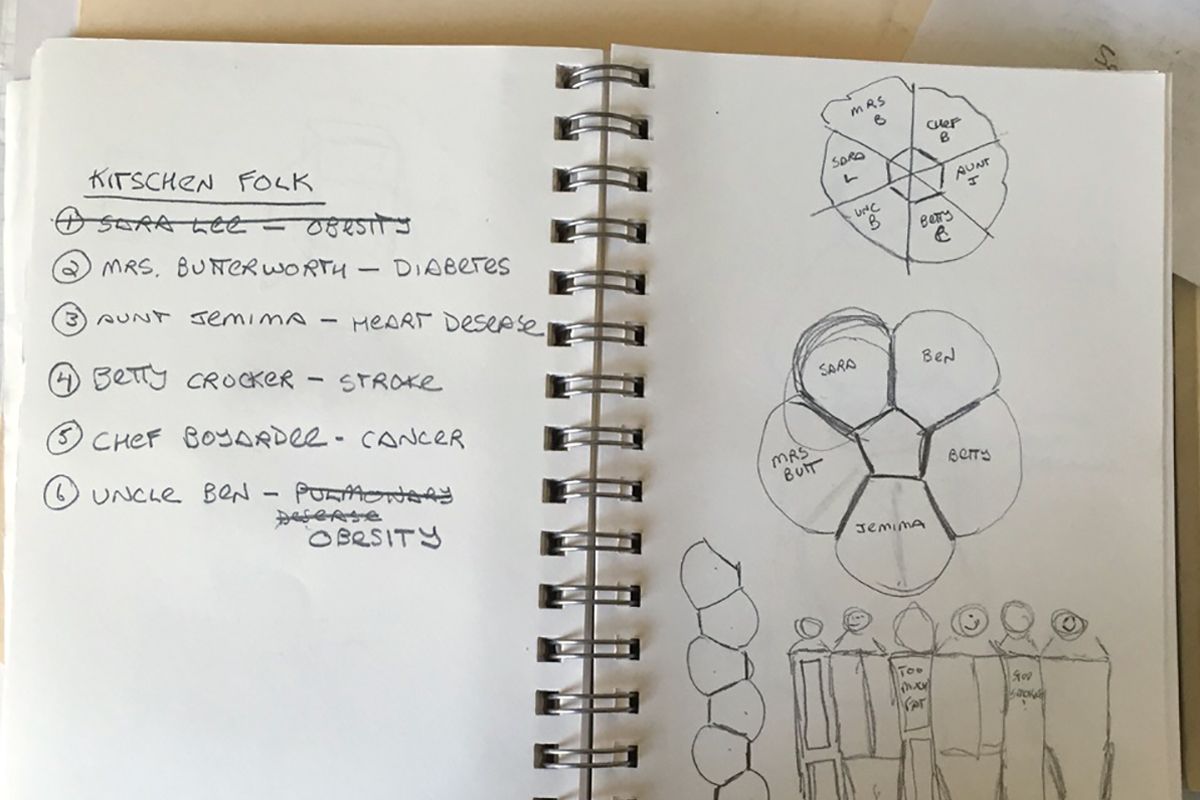 KITSCHEN FOLK
① SARA LEE – OBESITY
② MRS. BUTTERWORTH – DIABETES
③ AUNT JEMIMA – HEART DESEASE
④ BETTY CROCKER – STROKE
⑤ CHEF BOYARDEE - CANCER
⑥ UNCLE BEN – PULMONARY
DESEASE
OBESITY
MRS
B
CHEF
B
SARA
L
AUNT
J
UNC
B
BETTY
C
SARA
BEN
MRS
BUTT
BETTY
JEMIMA
TOO
MUCH
FAT
STOP